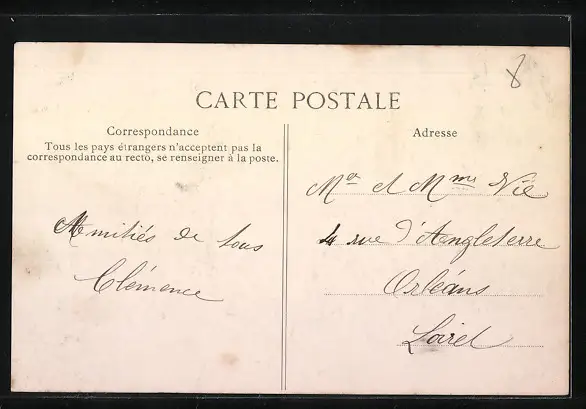 8
CARTE POSTALE
Correspondance
Tous les pays étrangers n'acceptent pas la
correspondance au recto, se renseigner à la poste.
Amitiés de tous
Clémence
Adresse
Mr et Mme Vié
4 rue d'Angleterre
Orléans
Loiret